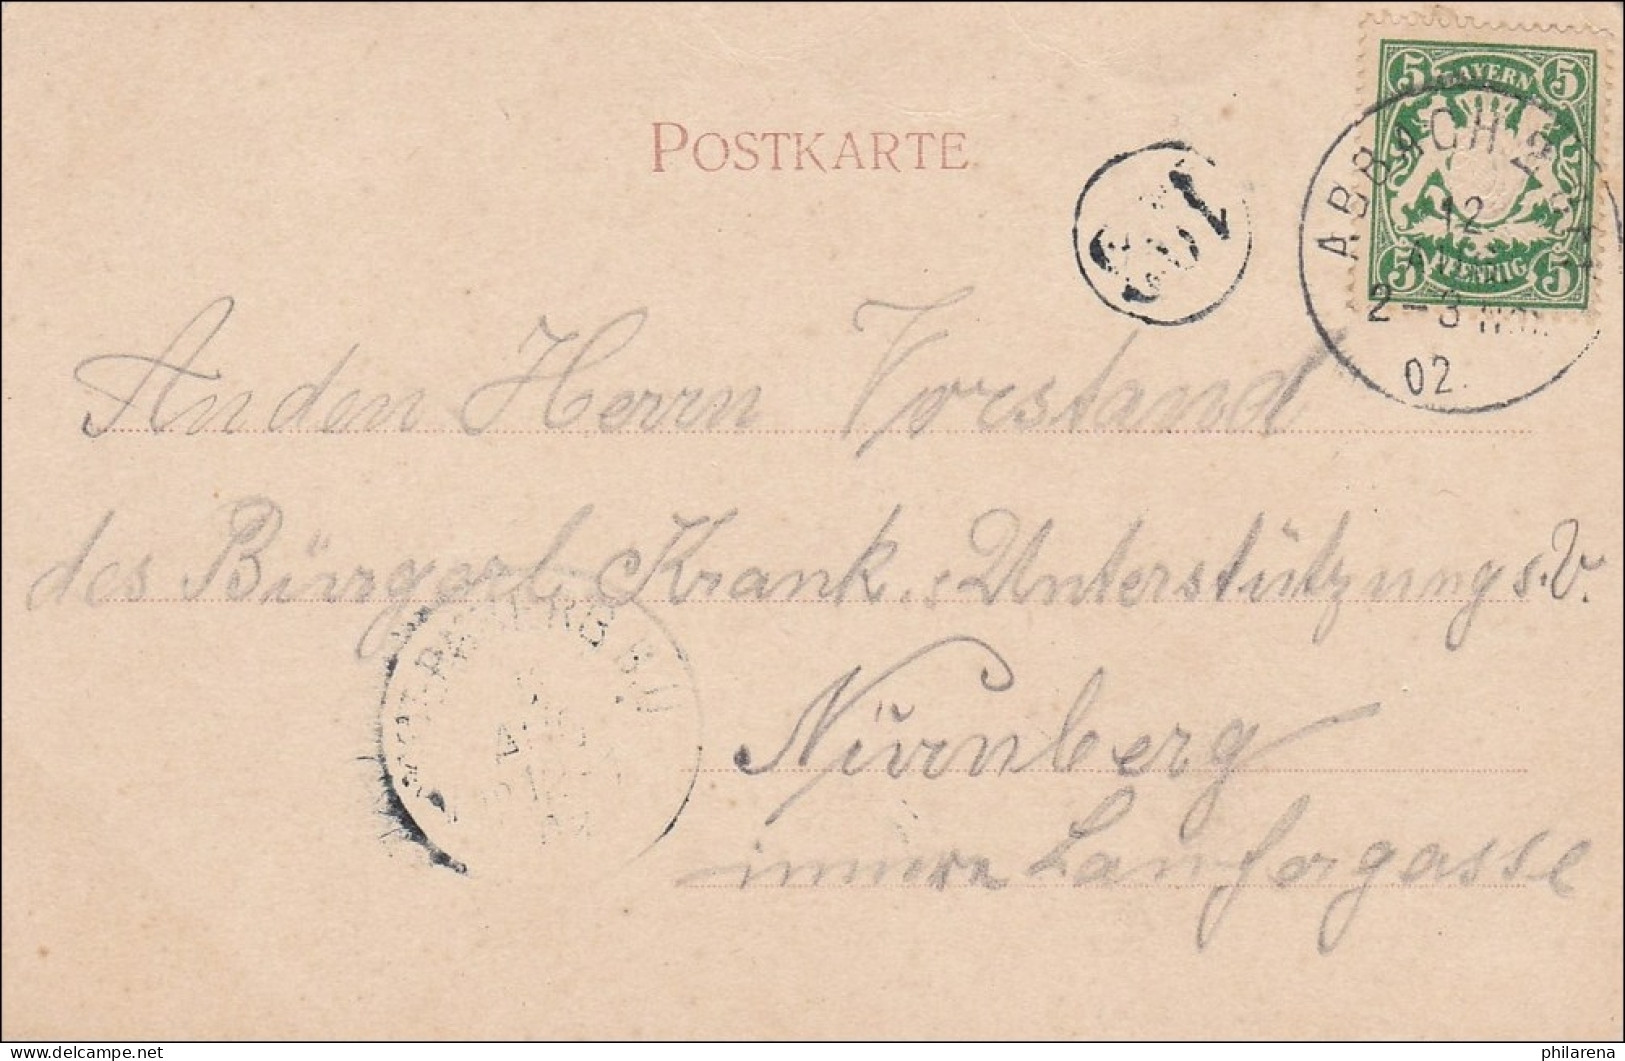 POSTKARTE
BAYERN
5 5
5 5
PFENNIG
ABBACH
12
AUG
2-3 Nm.
02
An den Herrn Vorstand
des Bürgerl. Krank.-Unterstützungs.V.
Nürnberg
innere Laufergasse
NUERNBERG
delcampe.net
philarena